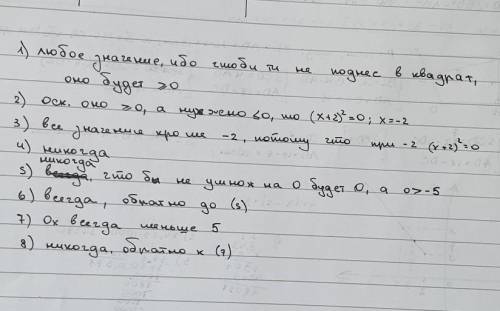 1) любое значение, ибо чтоби ти не поднес в квадрат,
оно будет ≥0
2) Оск. оно ≥0, а нужено ≤0, то (x+2)²=0; x=-2
3) все значение кроме -2, потому что при -2 (x+2)²=0
4) никогда
никогда
5) всегда, что бы не умнож на 0 будет 0, а 0>-5
6) всегда, обратно до (5)
7) 0x всегда меньше 5
8) никогда, обратно к (7)